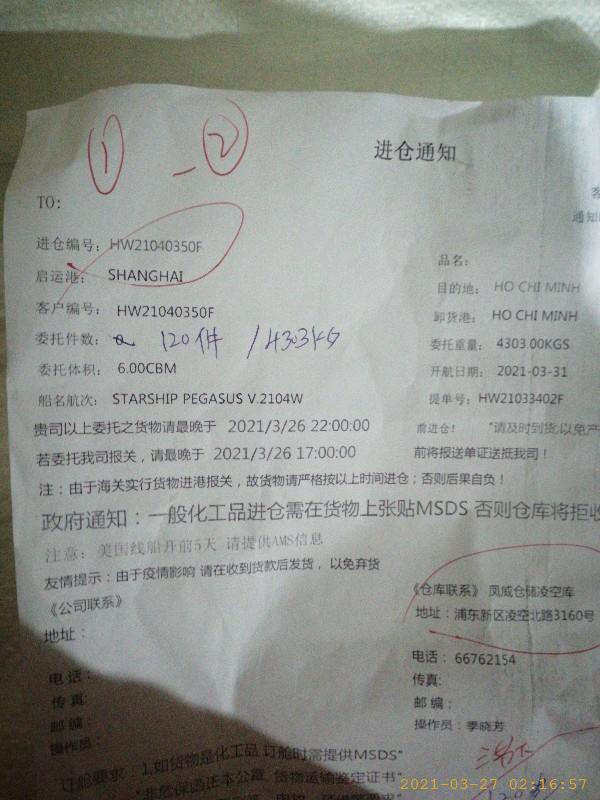 ① - ②
进仓通知
TO:
进仓编号: HW21040350F
启运港: SHANGHAI
品名:
目的地: HO CHI MINH
客户编号: HW21040350F
卸货港: HO CHI MINH
委托件数: 120件 /4303KG
委托重量: 4303.00KGS
委托体积: 6.00CBM
开航日期: 2021-03-31
船名航次: STARSHIP PEGASUS V.2104W
提单号: HW21033402F
贵司以上委托之货物请最晚于 2021/3/26 22:00:00
前进仓! "请及时到货,以免产
若委托我司报关,请最晚于 2021/3/26 17:00:00
前将报送单证送抵我司!
注:由于海关实行货物进港报关,故货物请严格按以上时间进仓;否则后果自负!
政府通知:一般化工品进仓需在货物上张贴MSDS 否则仓库将拒收
注意: 美国线船开前5天 请提供AMS信息
友情提示:由于疫情影响 请在收到货款后发货, 以免弃货
《公司联系》
《仓库联系》 凤威仓储凌空库
地址:
地址: 浦东新区凌空北路3160号
电话:
电话: 66762154
传真:
传真:
邮编:
邮编:
操作员:
操作员: 季晓芳
订舱要求: 1.如货物是化工品 订舱时需提供MSDS"
"非危保函正本公章, 货物运输鉴定证书"
2021-03-27 02:16:57